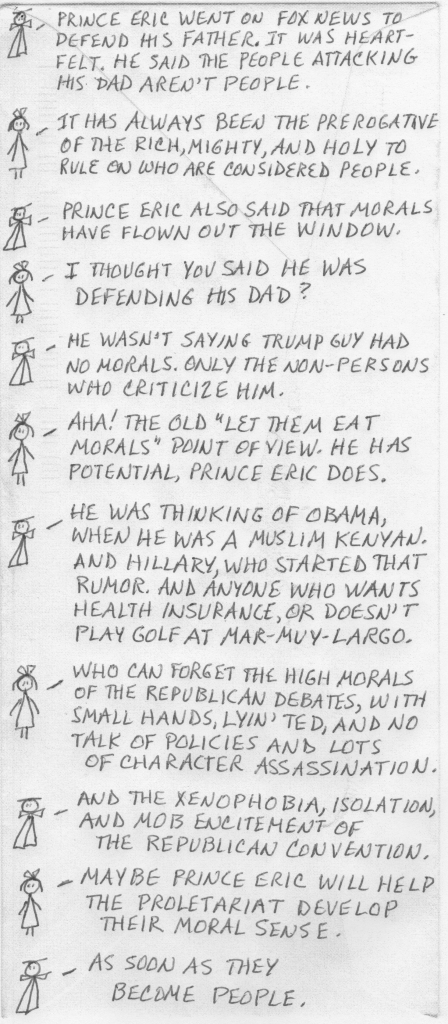 PRINCE ERIC WENT ON FOX NEWS TO
DEFEND HIS FATHER. IT WAS HEART-
FELT. HE SAID THE PEOPLE ATTACKING
HIS DAD AREN'T PEOPLE.
IT HAS ALWAYS BEEN THE PREROGATIVE
OF THE RICH, MIGHTY, AND HOLY TO
RULE ON WHO ARE CONSIDERED PEOPLE.
PRINCE ERIC ALSO SAID THAT MORALS
HAVE FLOWN OUT THE WINDOW.
I THOUGHT YOU SAID HE WAS
DEFENDING HIS DAD?
HE WASN'T SAYING TRUMP GUY HAD
NO MORALS. ONLY THE NON-PERSONS
WHO CRITICIZE HIM.
AHA! THE OLD "LET THEM EAT
MORALS" POINT OF VIEW. HE HAS
POTENTIAL, PRINCE ERIC DOES.
HE WAS THINKING OF OBAMA,
WHEN HE WAS A MUSLIM KENYAN.
AND HILLARY, WHO STARTED THAT
RUMOR. AND ANYONE WHO WANTS
HEALTH INSURANCE, OR DOESN'T
PLAY GOLF AT MAR-MUY-LARGO.
WHO CAN FORGET THE HIGH MORALS
OF THE REPUBLICAN DEBATES, WITH
SMALL HANDS, LYIN' TED, AND NO
TALK OF POLICIES AND LOTS
OF CHARACTER ASSASSINATION.
AND THE XENOPHOBIA, ISOLATION,
AND MOB ENCITEMENT OF
THE REPUBLICAN CONVENTION.
MAYBE PRINCE ERIC WILL HELP
THE PROLETARIAT DEVELOP
THEIR MORAL SENSE.
AS SOON AS THEY
BECOME PEOPLE.